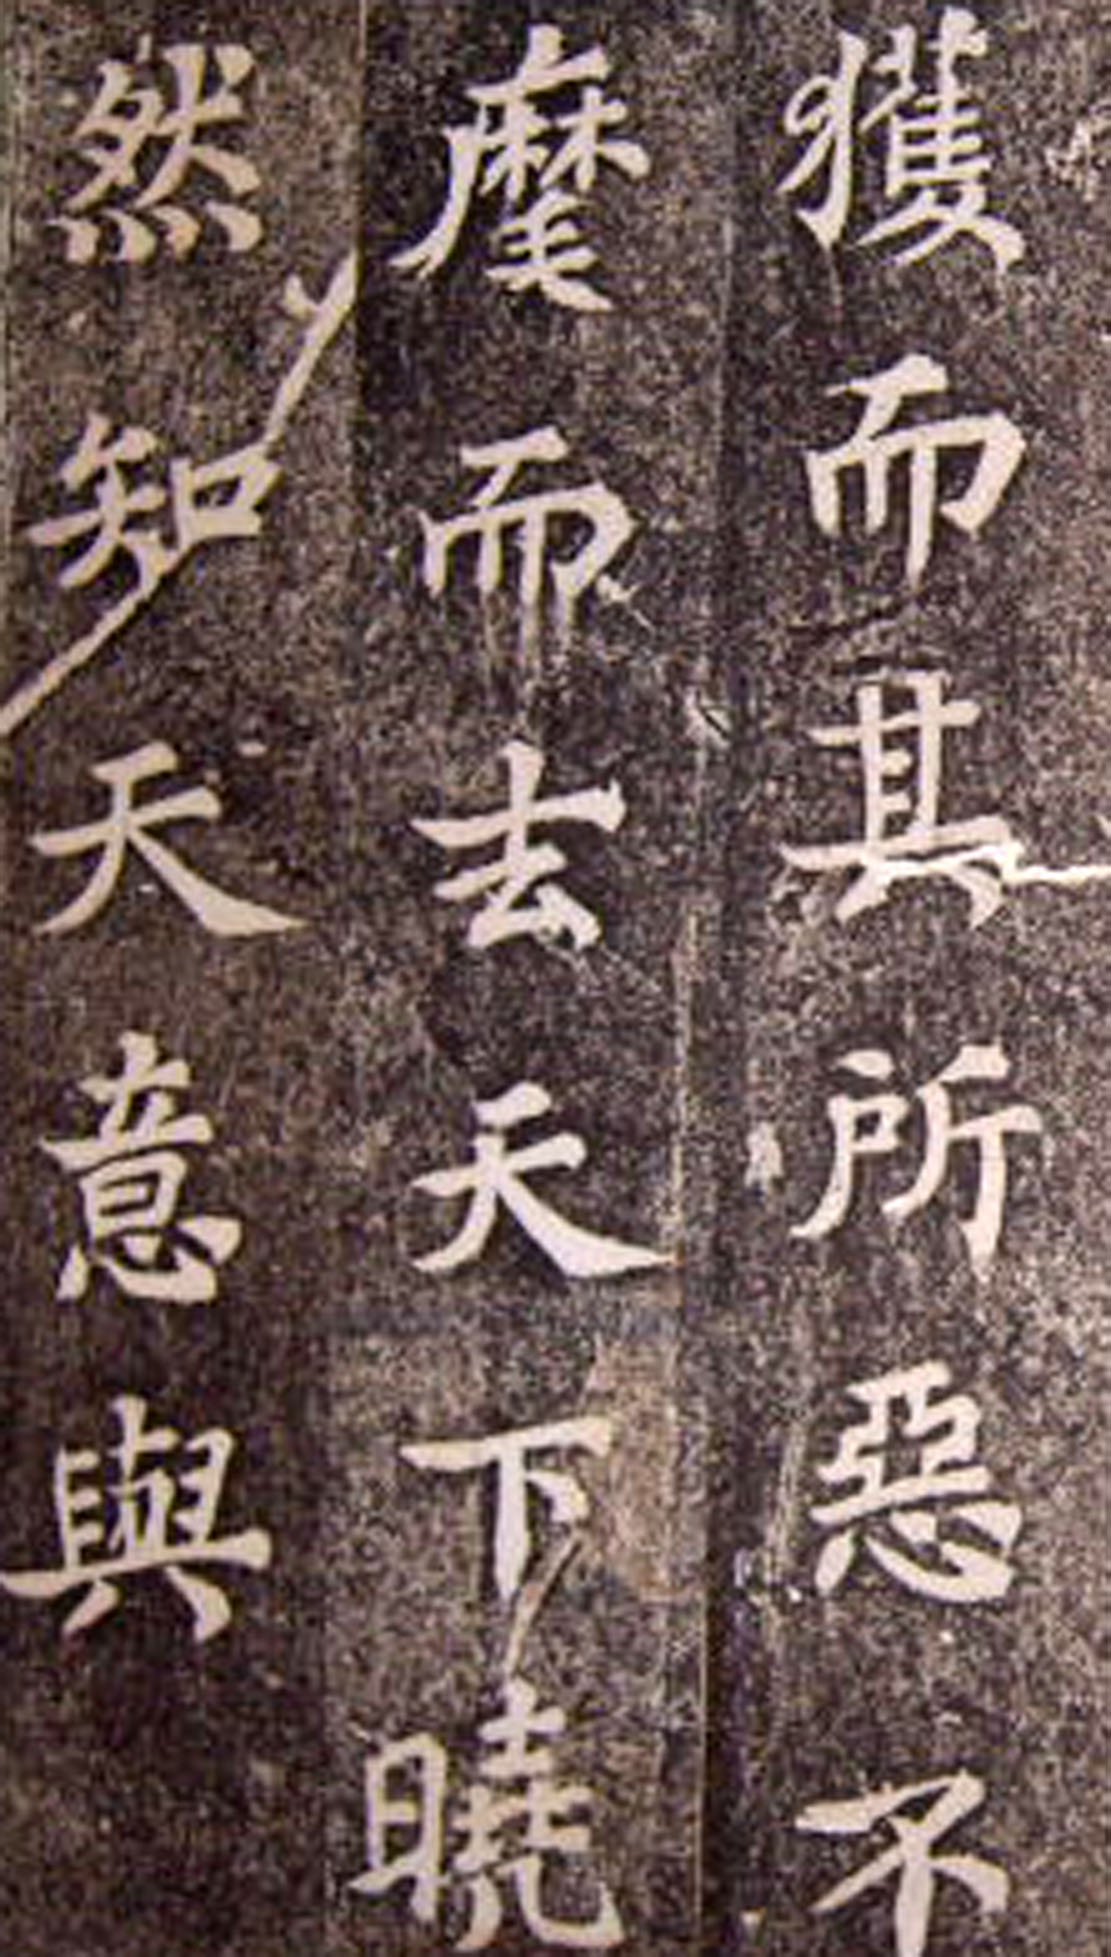 獲而其所惡不
麾而去天下曉
然知天意與